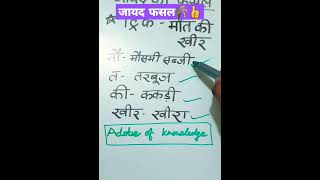 जायद फसल🌾👍
जायद की फसल
* ट्रिक - मौत की
खीर
मौ - मौसमी सब्जी
त - तरबूज
की - ककड़ी
खीर - खीरा
Adobe of knowledge